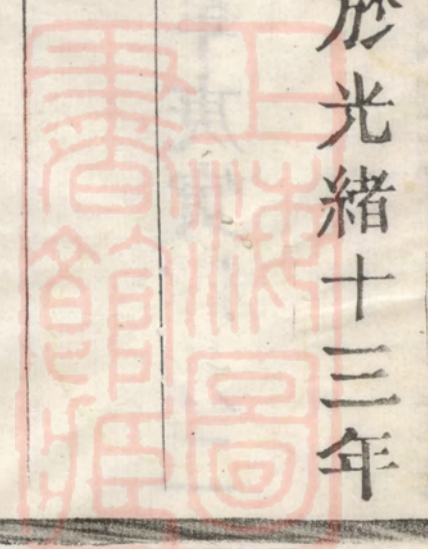 於光緒十三年
上海圖
書館藏